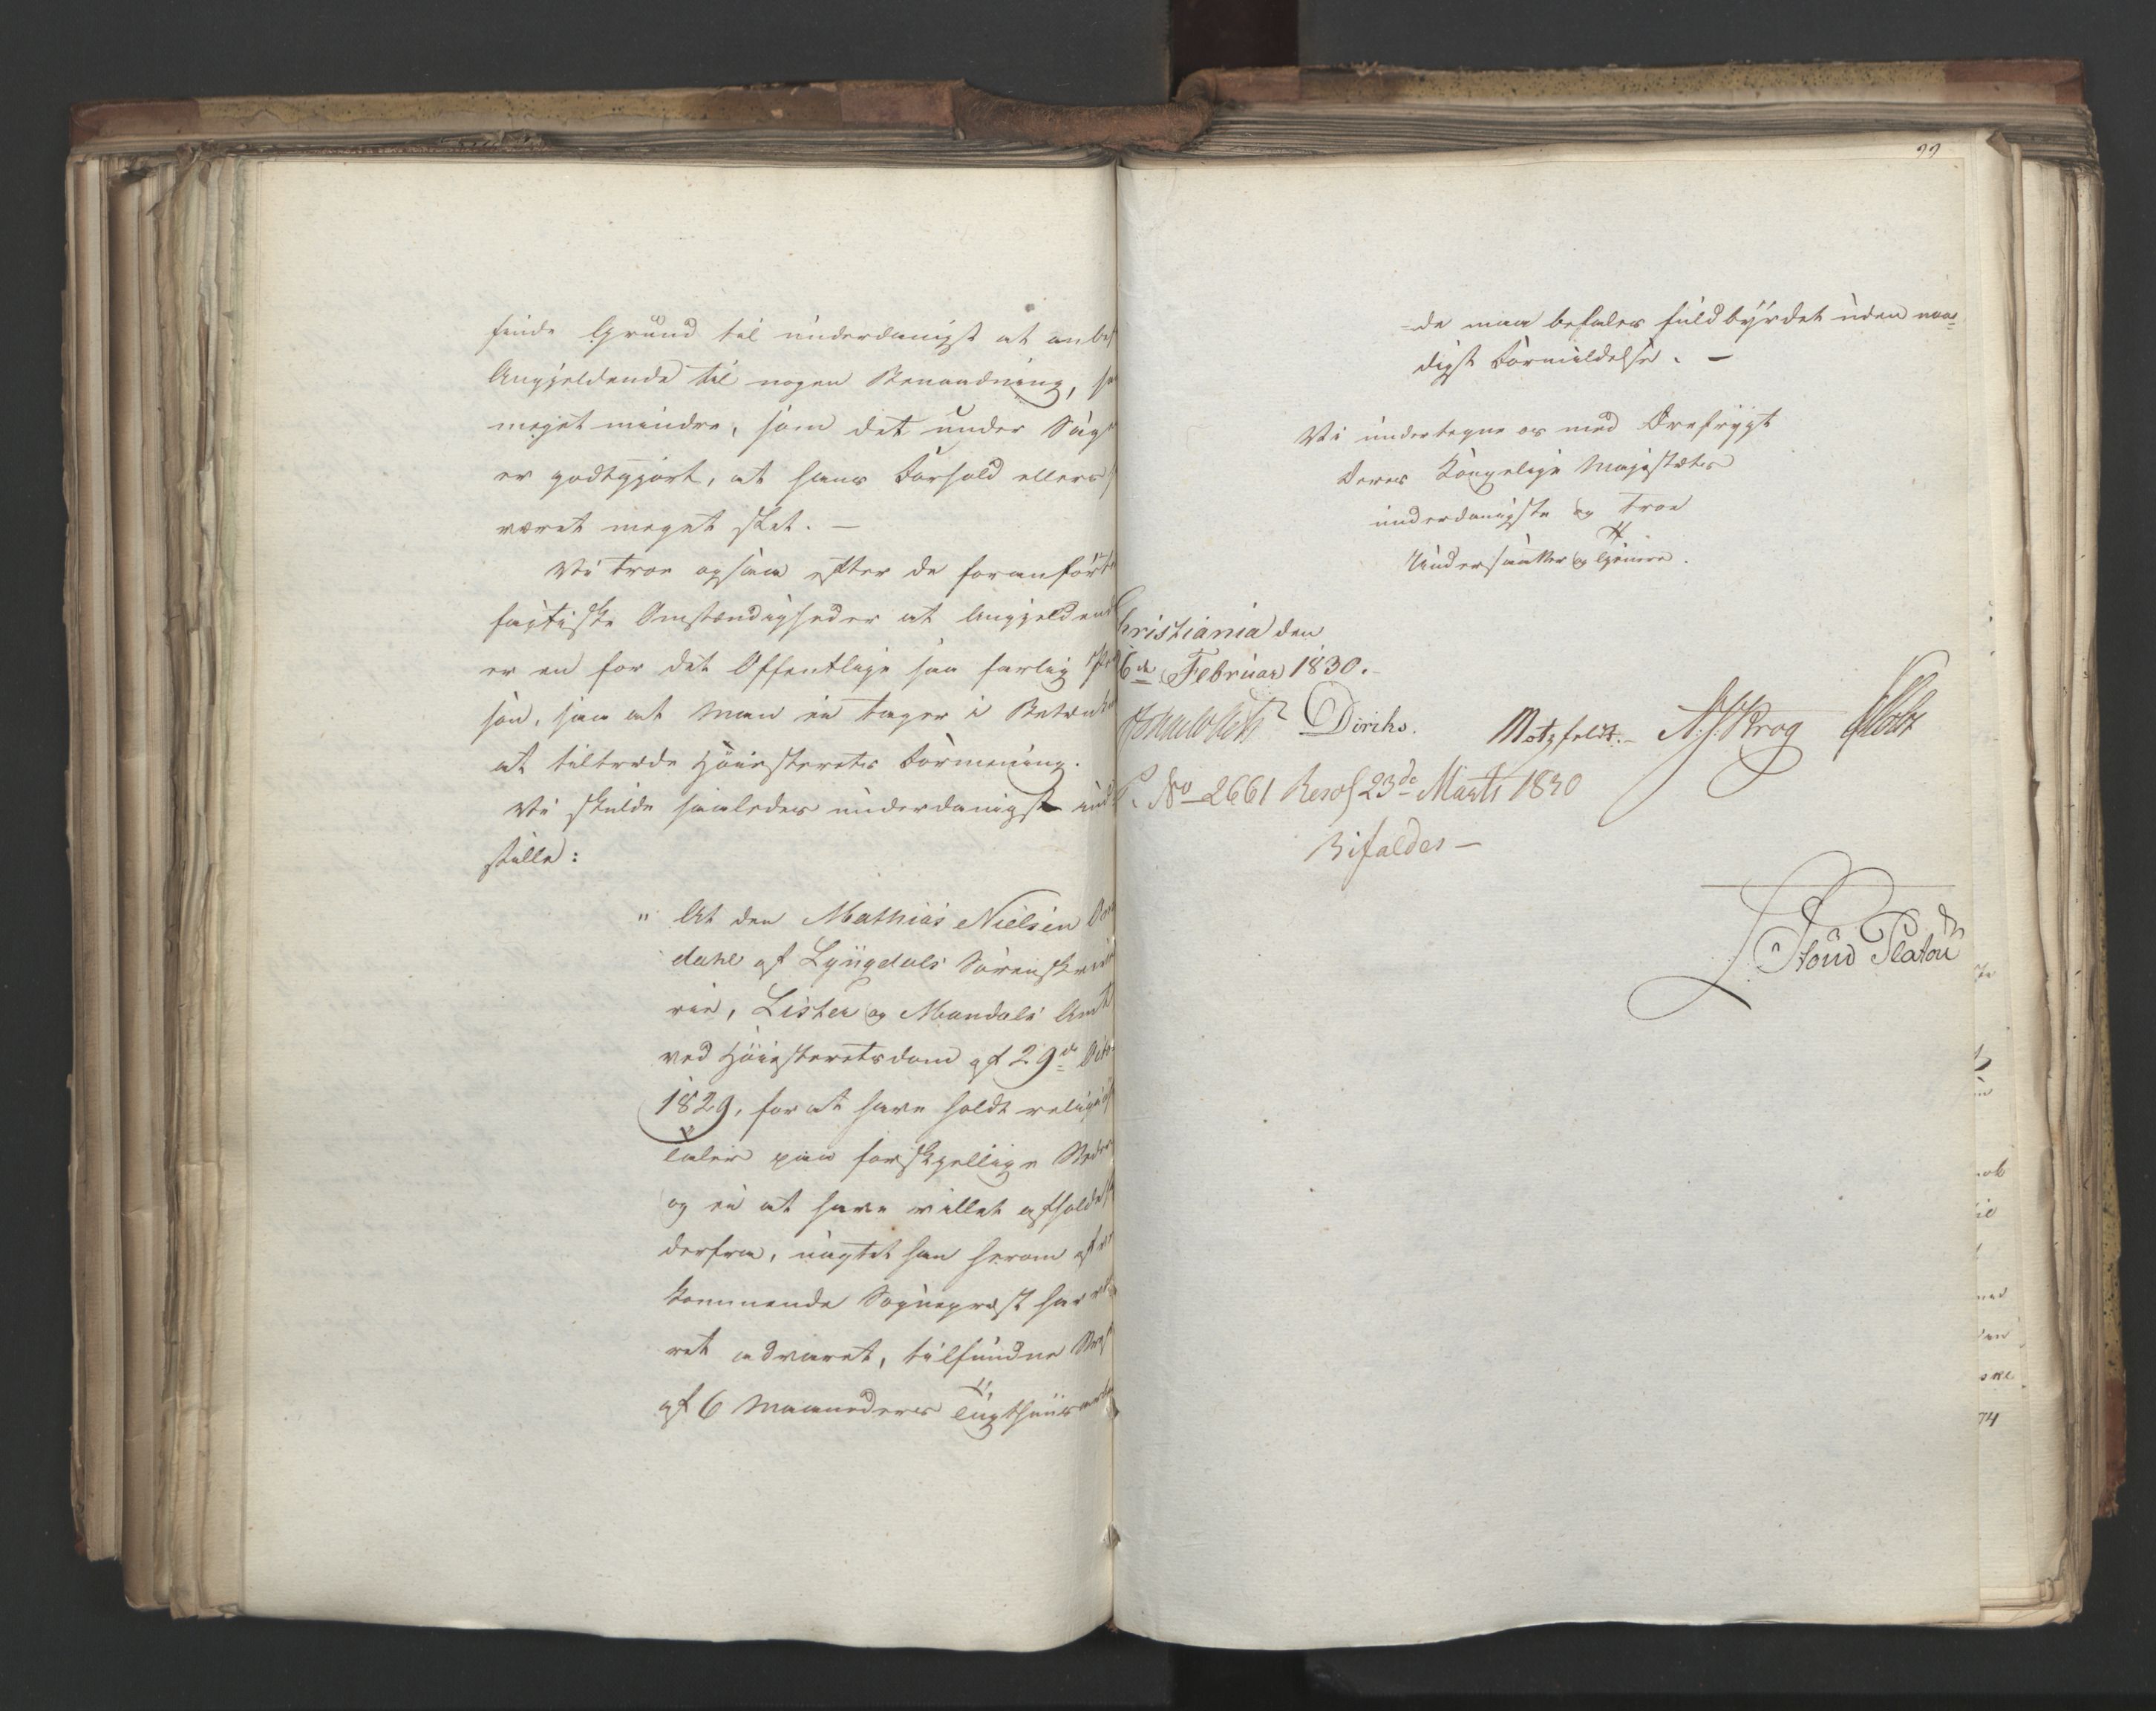 finde Grund til underdanigst at anbef
Angjeldende til nogen Benaadning, saa
meget mindre, som det under Sagen
er godtgjort, at hans Forhold ellers
været meget slet. —
Vi troe ogsaa efter de foranførte
factiske Omstændigheder at Angjeldend
er en for det Offentlige saa farlig Per
son, saa at Man ei tager i Betænk
at tiltræde Høiesterets Formening.
Vi skulde saaledes underdanigst ind
stille:
" At den Mathias Nielsen
dahl af Lyngdals Sørenskrive
rie, Lister og Mandals Amt
ved Høiesteretsdom af 29de
1829, for at have holdt religiøse
Taler paa forskjellige Steder
og ei at have villet afholde
derfra, uagtet han herom af ved
kommende Sognepræst har væ
ret advaret, tilfundne Straf
af 6 Maaneders Tugthuusarbei
99
=de maa befales fuldbyrdet uden naa=
digst Formildelse. —
Vi undertegne os med Ærefrygt
Deres Kongelige Majestæts
underdanigste og troe
Undersaatter og Tjenere.
Christiania den
6de Februar 1830.
Diriks. Motzfeldt. N. J. Krog Holst
P. No 2661 Resol 23de Marts 1830
Bifaldes —
Stoud Platou